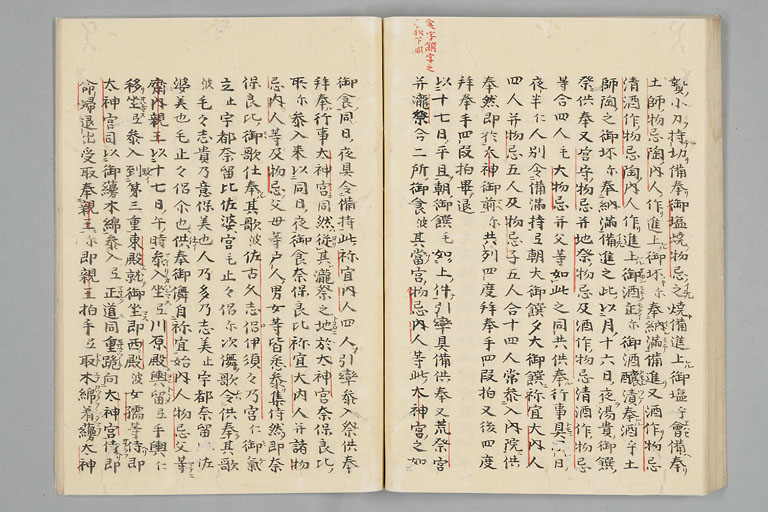 贄小刀持切備奉御塩焼物忌之焼備進上御塩乎會備奉
土師物忌陶内人作進上御坏尓奉納満備進又酒作物忌
清酒作物忌陶内人作進上御酒缶尓御酒醸漬奉酒乎土
師陶之御坏尓奉納満備進之此以月十六日夜湯貴御饌
祭供奉又宮守物忌并地祭物忌及酒作物忌清酒物忌
等合四人毛大物忌并父等如此之同共供奉行事具以日
夜半仁人別令備満持弖朝大御饌夕大御饌祢宜大内人
四人并物忌五人及物忌子五人合十四人常参入内院供
奉然即於大神御前尓共列四度拜奉手四段拍又後四度
拜奉手四段拍畢退
以十七日平旦朝御饌毛如上件引率具備供奉又荒祭宮
并瀧祭合二所御食波其當宮物忌内人等此大神宮之如
御食同日夜具令備持此祢宜内人四人引率参入祭供奉
拜奉行事大神宮同然從其瀧祭之地於大神宮奈保良比
所尓参入来以同日夜御食奈保良比祢宜大内人并諸物
忌内人等及物忌父母等戸人男女等皆悉参集侍然即奈
保良比御歌仕奉其歌波佐古久志侶伊須々乃宮仁御氣
立止宇都奈留比佐婆宮毛止々侶尓次儛歌令供奉其歌
波毛々志貴乃意保美也人乃多乃志美止宇都奈留比佐
婆美也毛止々侶尓也供奉御儛自祢宜始内人物忌父等
齋内親王以十七日午時参入坐弖川原殿輿留弖手輿仁
移坐弖参入到第三重東殿就御坐即西殿波女孺等侍即
大神宮司以御蘰木綿参入弖正道同重跪向大神宮侍即
命婦退出受取奉親王尓即親王拍手弖取木綿着蘰大神